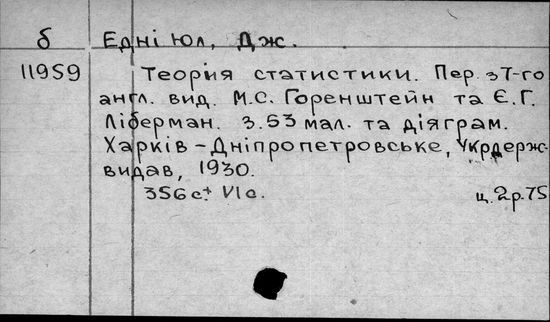 б Едні Юл, Дж.
11959 Теория статистики. Пер. з 7-го
англ. вид. М.С. Горенштейн та Є.Г.
Ліберман. З 53 мал. та діяграм.
Харків-Дніпропетровське, Укрдерж-
видав, 1930.
356 с.+ VI с. ц. 2р. 75